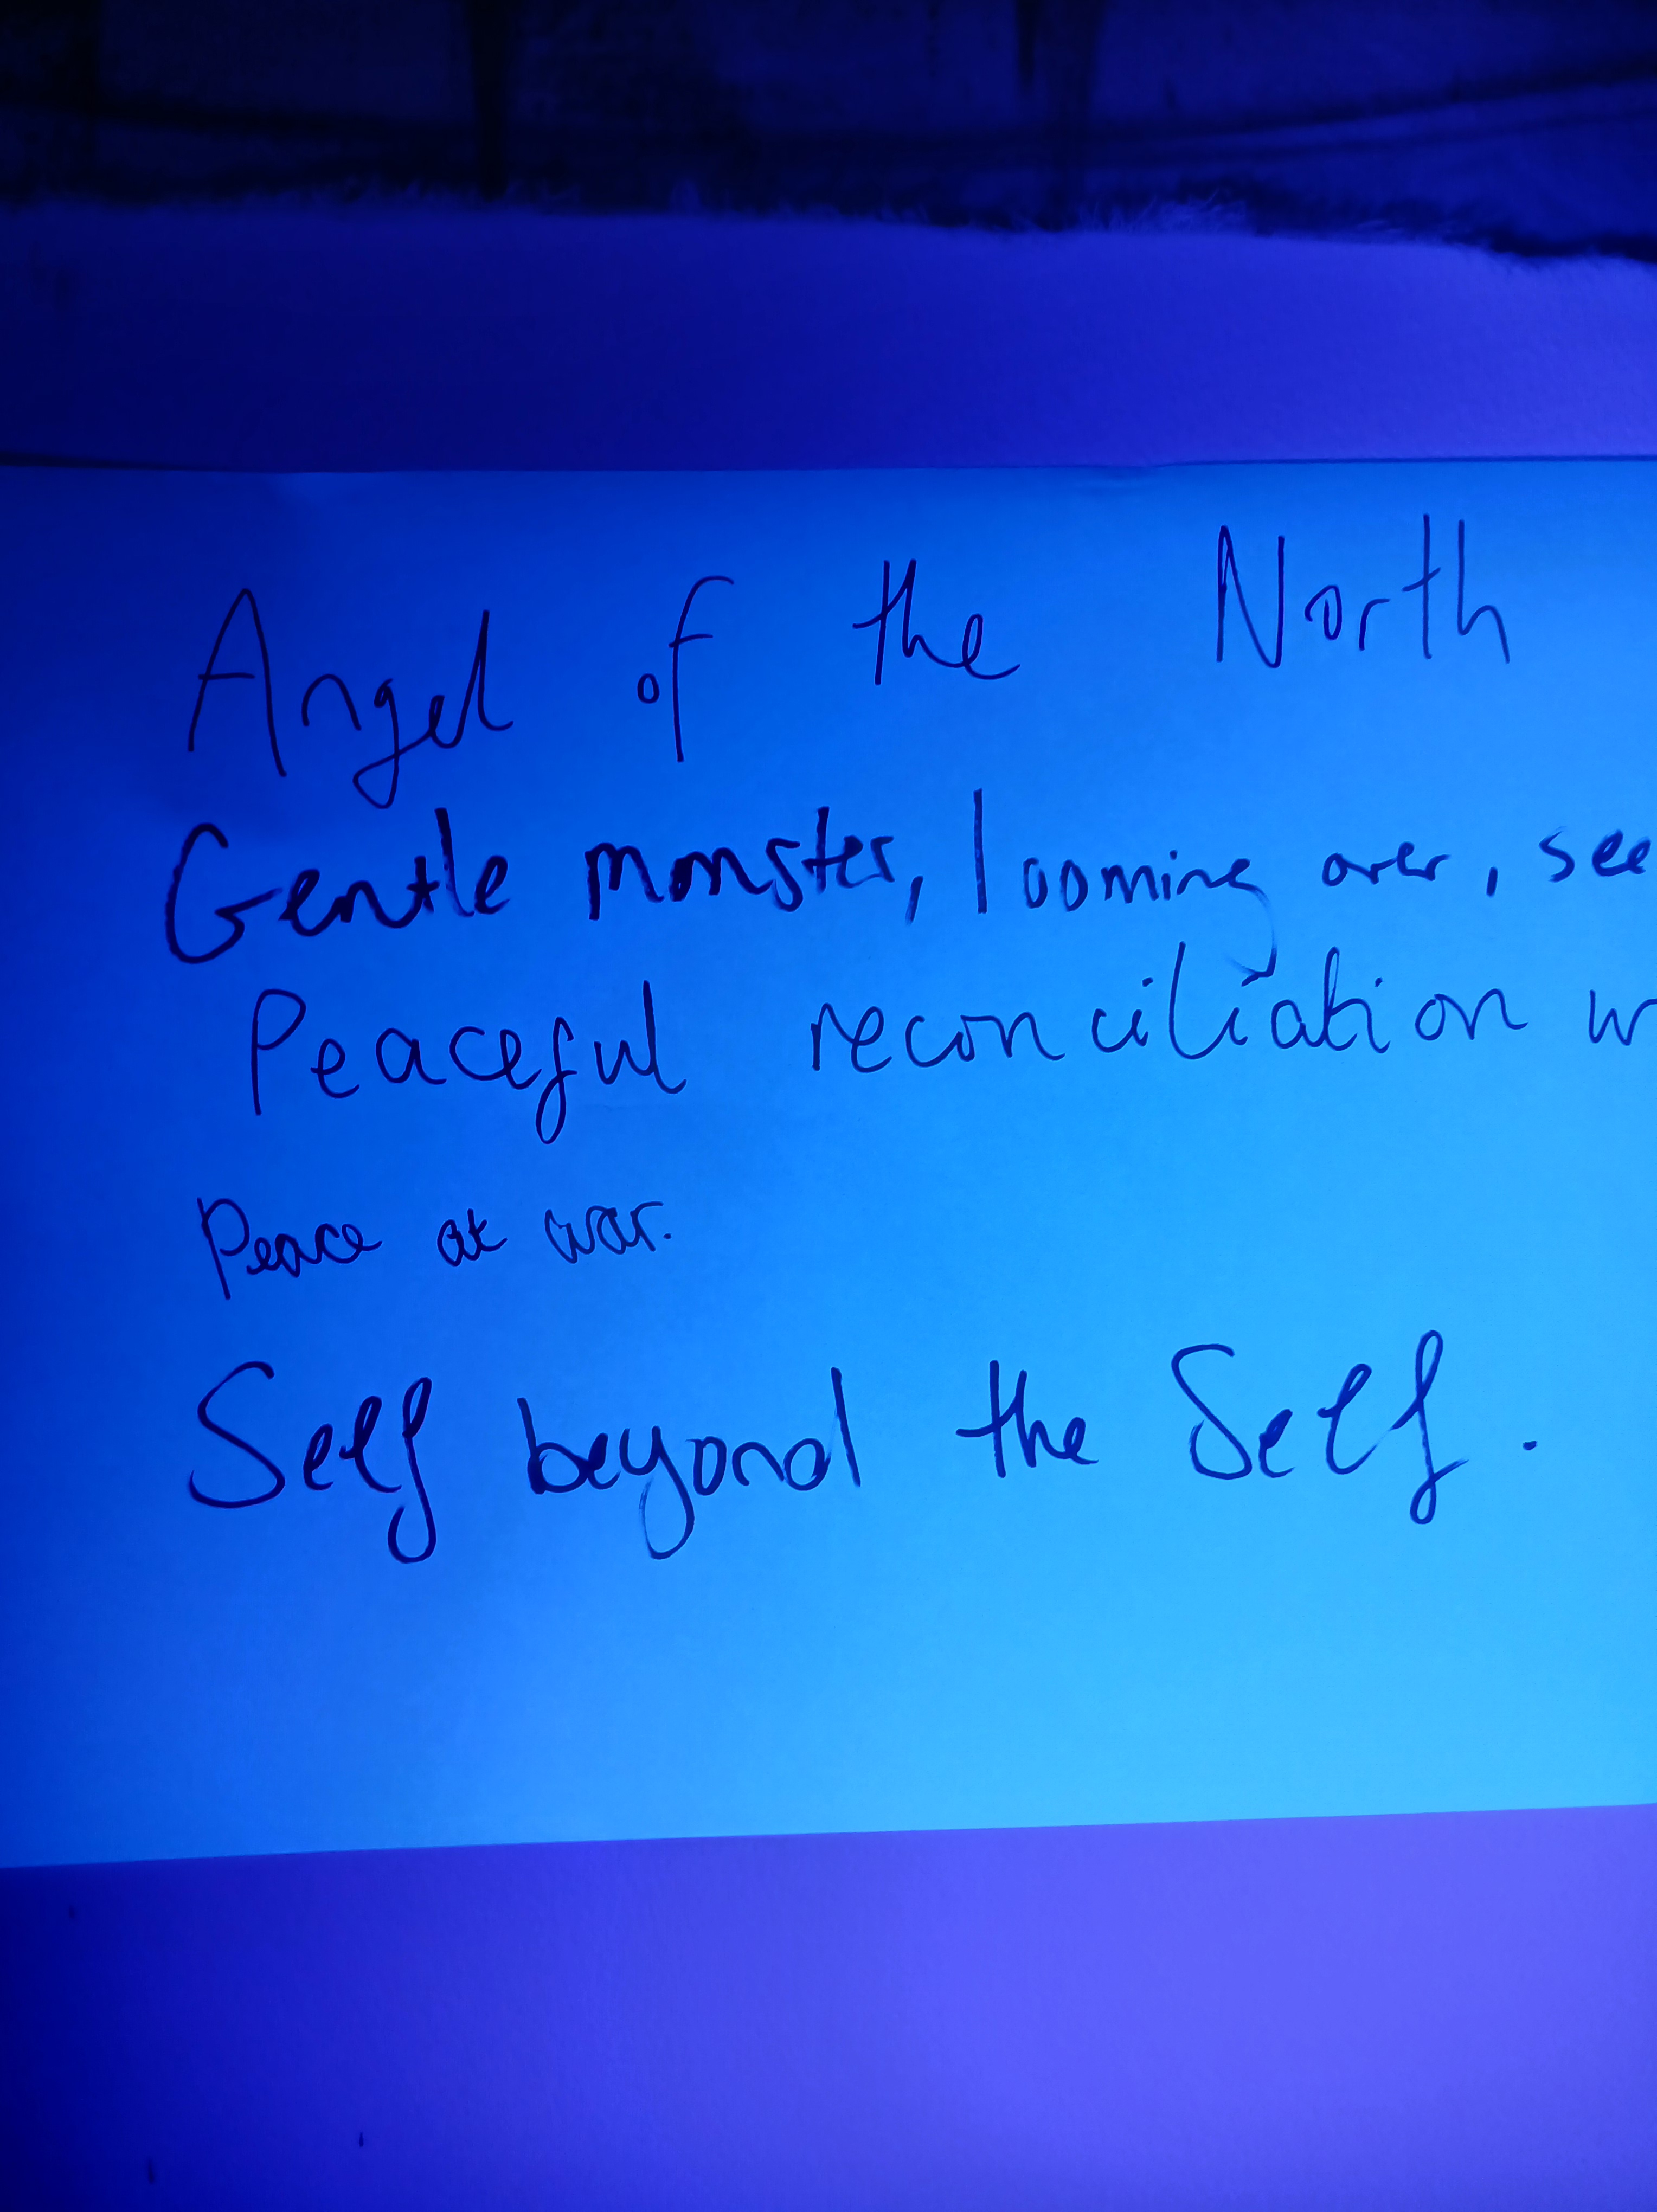 Angel of the North
Gentle monster, looming over, see
Peaceful reconciliation w
Peace at war.
Self beyond the Self.